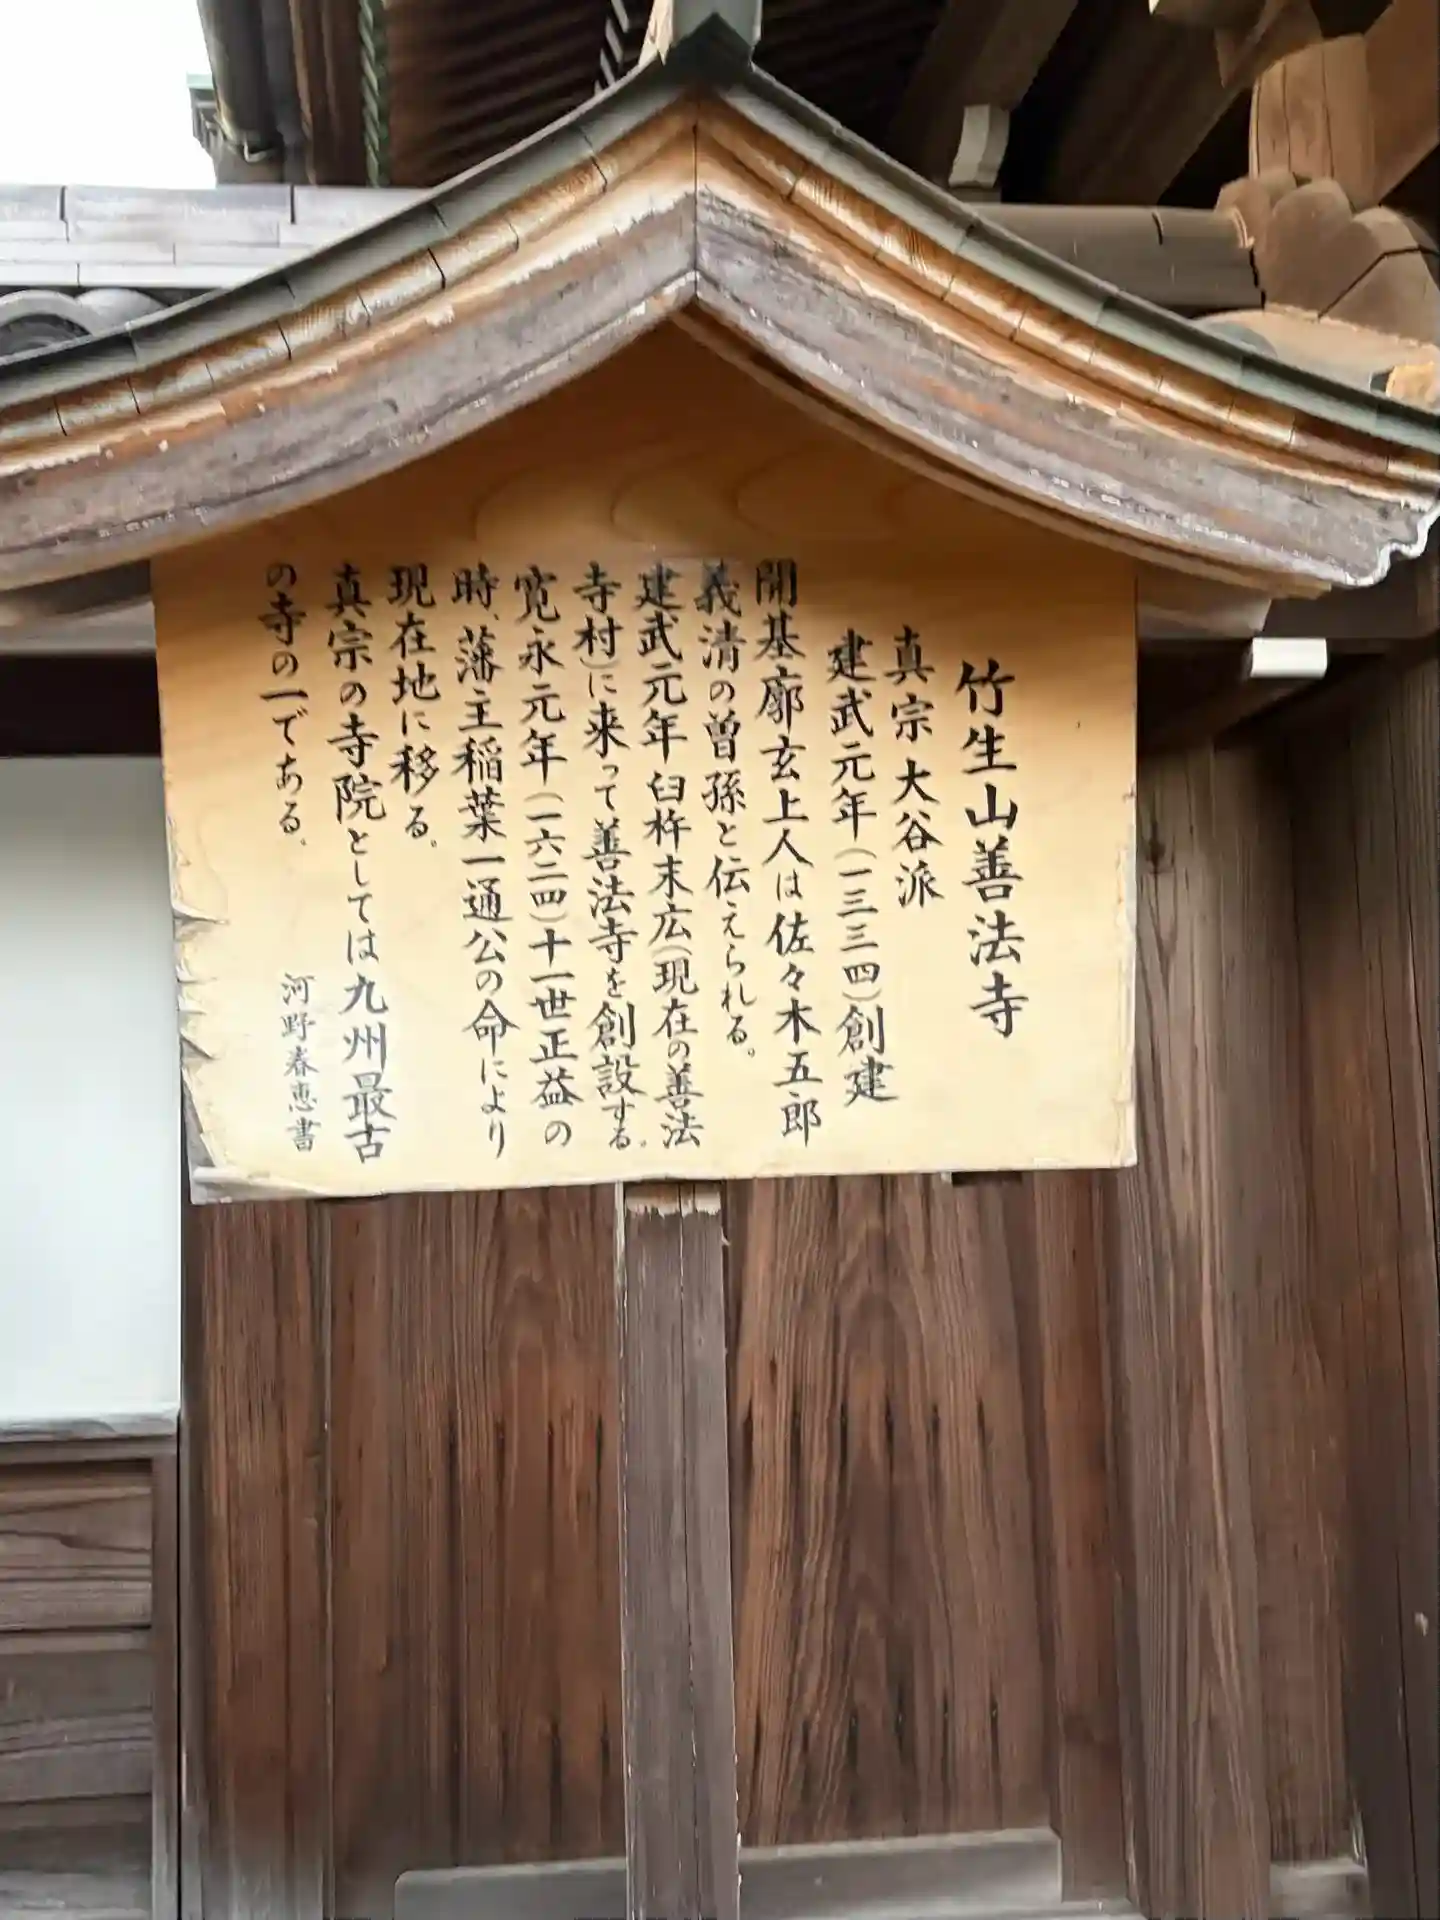 竹生山善法寺
真宗大谷派
建武元年(一三三四)創建
開基廓玄上人は佐々木五郎
義清の曽孫と伝えられる。
建武元年臼杵末広(現在の善法
寺村)に来って善法寺を創設する。
寛永元年(一六二四)十一世正益の
時、藩主稲葉一通公の命により
現在地に移る。
真宗の寺院としては九州最古
の寺の一である。
河野春恵書